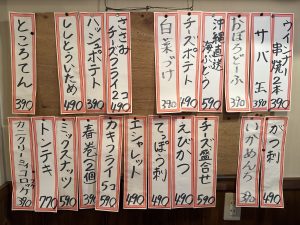 ウインナー串焼2本 390
サバ 玉 390
おぼろどーふ 490
沖縄直送海ぶどう 590
チーズポテト 490
白菜づけ 390
ささみチーズフライ2コ 490
ハッシュポテト 390
ししとういため 490
ところてん 390
がつ刺 490
いかめんち 390
チーズ盛合せ 590
えびかつ 490
てっぽう刺 490
エシャレット 490
カキフライ5コ 590
春巻(2個) 390
ミックスナッツ 590
トンテキ 770
カニクリーミィコロッケ 390